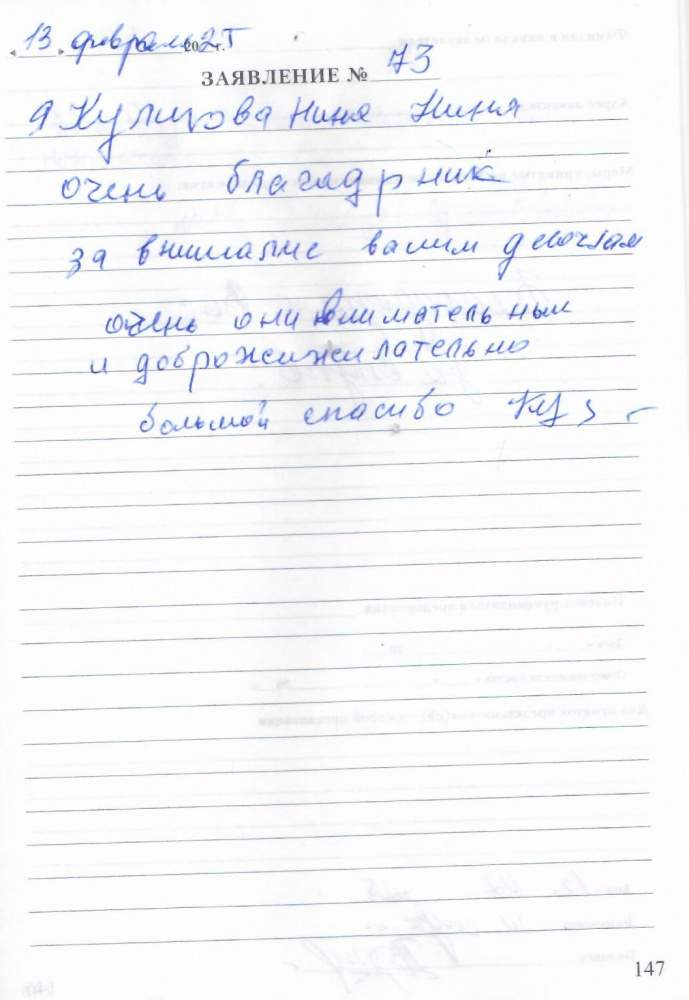 13 февраль 202 г.
ЗАЯВЛЕНИЕ № 73
Я Кулигова Ниня Ниня
очень благадрник
за внимание вашим девочкам
очень они вниматольным
и доброжижилательно
большой спасибо
147